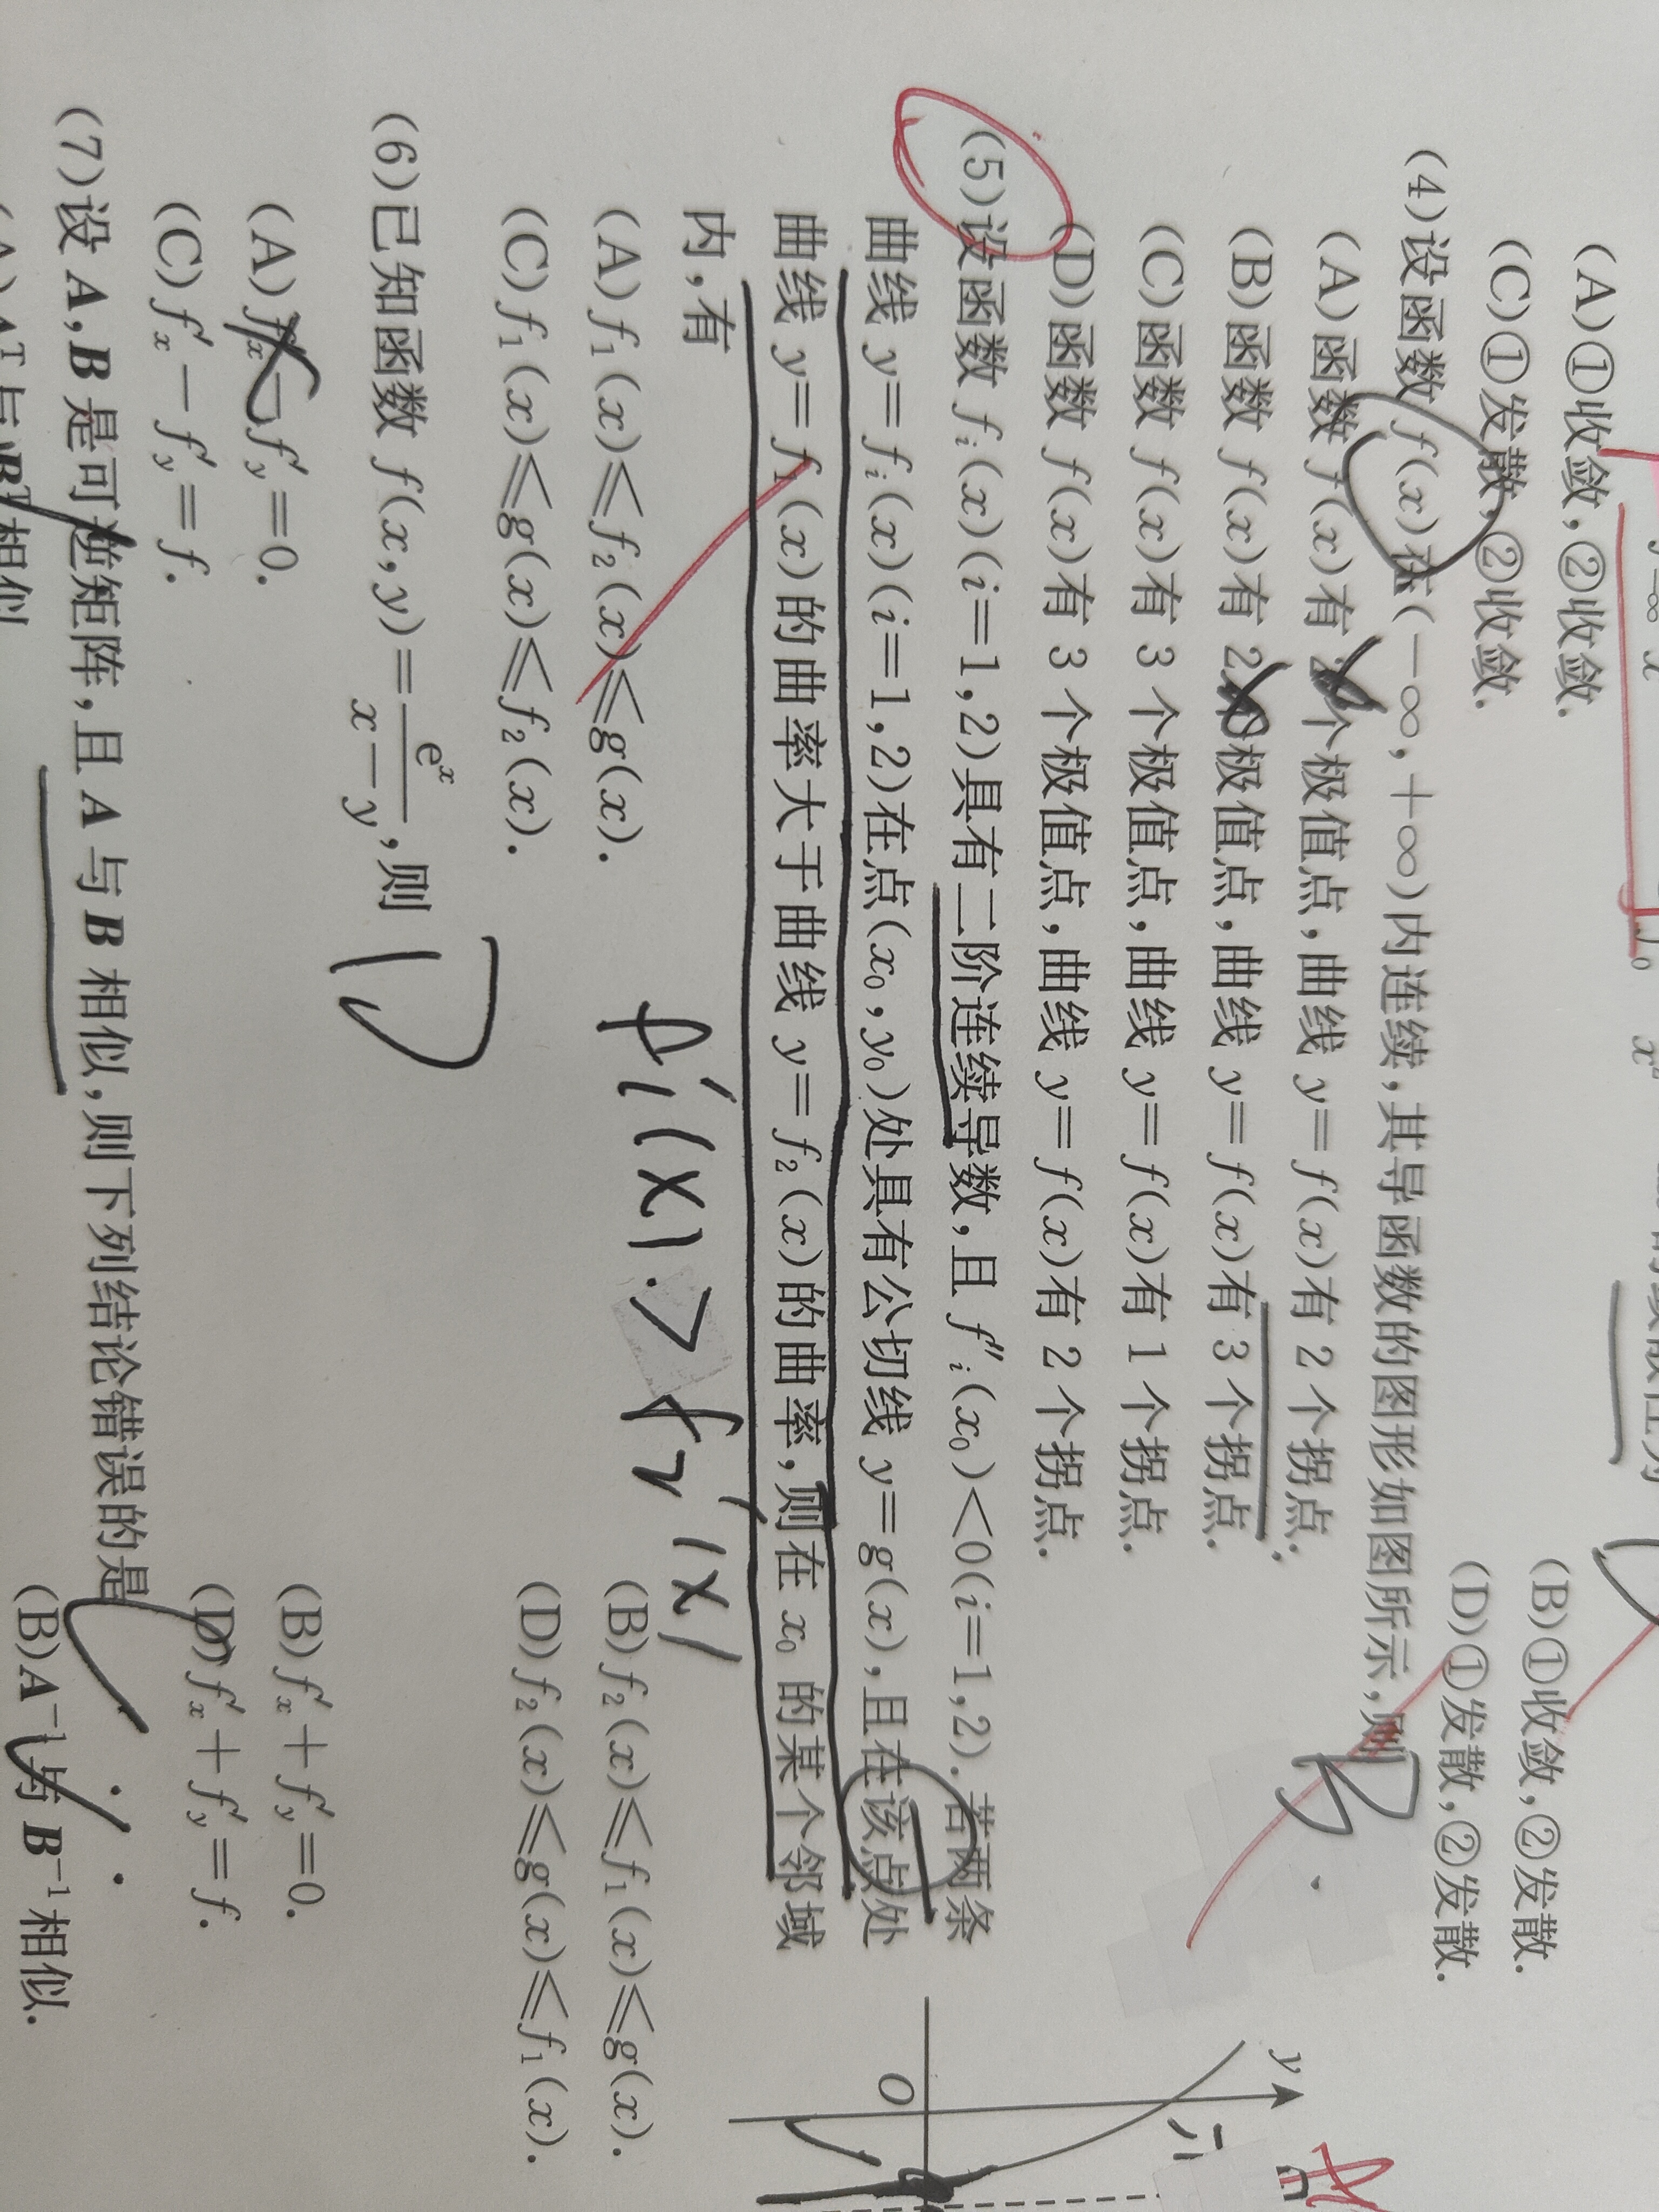 (A)①收敛,②收敛.
(B)①收敛,②发散.
(C)①发散,②收敛.
(D)①发散,②发散.
(4)设函数 f(x)在(-∞,+∞)内连续,其导函数的图形如图所示,则
(A)函数 f(x)有 2 个极值点,曲线 y=f(x)有 2 个拐点.
(B)函数 f(x)有 2 个极值点,曲线 y=f(x)有 3 个拐点.
(C)函数 f(x)有 3 个极值点,曲线 y=f(x)有 1 个拐点.
(D)函数 f(x)有 3 个极值点,曲线 y=f(x)有 2 个拐点.
y
O
(5)设函数 fᵢ(x)(i=1,2)具有二阶连续导数,且 f″ᵢ(x₀)<0(i=1,2).若两条
曲线 y=fᵢ(x)(i=1,2)在点(x₀,y₀)处具有公切线 y=g(x),且在该点处
曲线 y=f₁(x)的曲率大于曲线 y=f₂(x)的曲率,则在 x₀ 的某个邻域
内,有
f₁′(x).>f₂′(x)
(A)f₁(x)≤f₂(x)≤g(x).
(B)f₂(x)≤f₁(x)≤g(x).
(C)f₁(x)≤g(x)≤f₂(x).
(D)f₂(x)≤g(x)≤f₁(x).
(6)已知函数 f(x,y)=eˣ/(x-y),则 D
(A)f′ₓ-f′ᵧ=0.
(B)f′ₓ+f′ᵧ=0.
(C)f′ₓ-f′ᵧ=f.
(D)f′ₓ+f′ᵧ=f.
(7)设 A,B 是可逆矩阵,且 A 与 B 相似,则下列结论错误的是
(A)Aᵀ与Bᵀ相似
(B)A⁻¹与 B⁻¹相似.